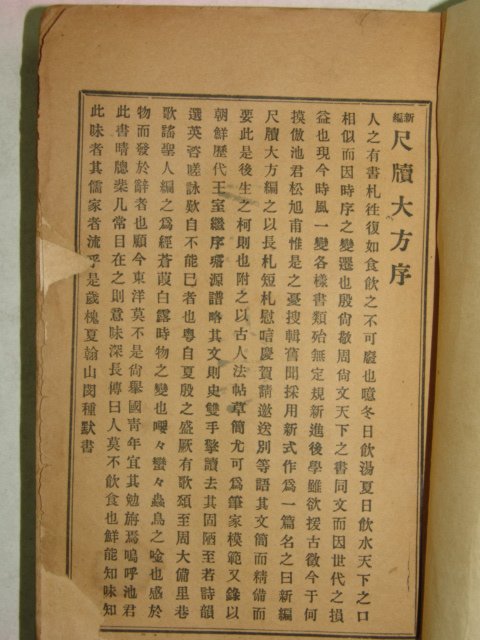 新編 尺牘大方序
人之有書札徃復如食飮之不可廢也噫冬日飮湯夏日飮水天下之口
相似而因時序之變遷也殷尙敬周尙文天下之書同文而因世代之損
益也現今時風一變各樣書類殆無定規新進後學雖欲援古徵今于何
摸倣池君松旭甫惟是之憂搜輯舊聞採用新式作爲一篇名之曰新編
尺牘大方編之以長札短札慰唁慶賀請邀送別等語其文簡而精備而
要此是後生之柯則也附之以古人法帖草簡尤可爲筆家模範又錄以
朝鮮歷代王室繼序璿源譜略其文則史雙手擎讀去其固陋至若詩韻
選英咨嗟詠歎自不能已者也粤自夏殷之盛厥有歌頌至周大備里巷
歌謠聖人編之爲經蒼葭白露時物之變也嚶々蠻々蟲鳥之唫也感於
物而發於辭者也顧今東洋莫不是尙擧國靑年宜其勉旃焉嗚呼池君
此書晴牕棐几常目在之則意味深長傳曰人莫不飮食也鮮能知味知
此味者其儒家者流乎是歲槐夏翰山閔種默書